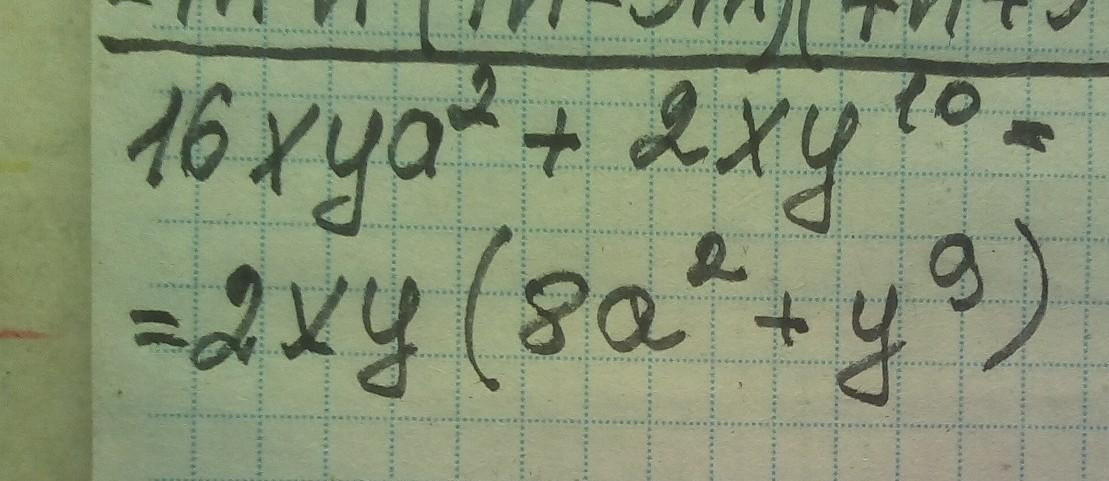 16xya² + 2xy¹⁰ =
= 2xy (8a² + y⁹)